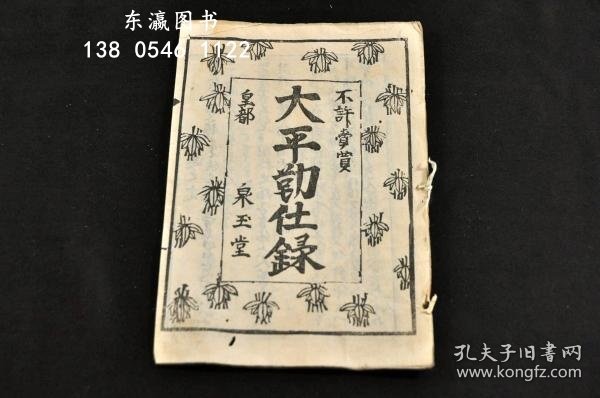 东瀛图书
138 0546 1122
不許賣買
大平勤仕録
皇都 泉玉堂
孔夫子旧书网
www.kongfz.com